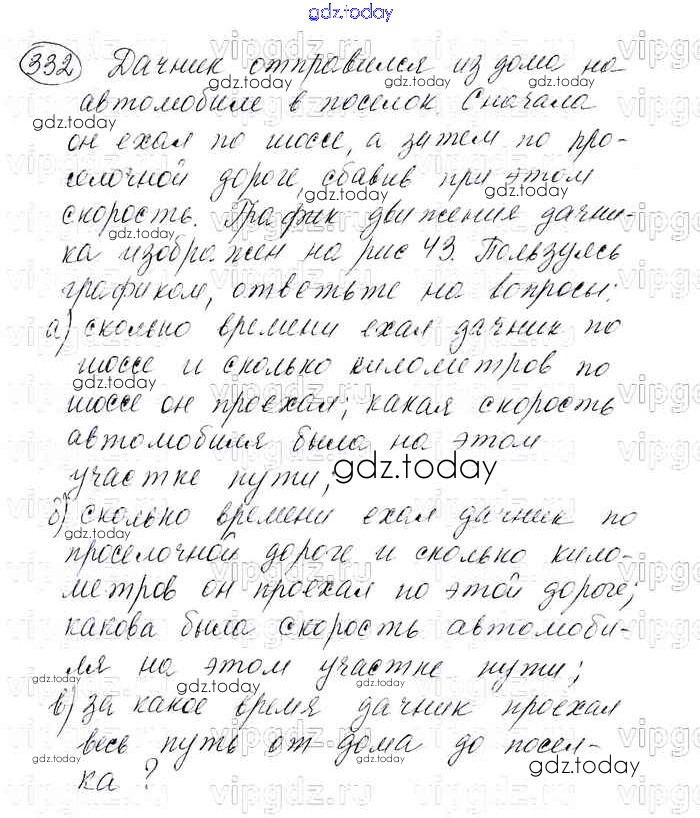 gdz.today
332 Дачник отправился из дома на
автомобиле в поселок. Сначала
он ехал по шоссе, а затем по про-
селочной дороге, сбавив при этом
скорость. График движения дачни-
ка изображен на рис 43. Пользуясь
графиком, ответьте на вопросы:
а) сколько времени ехал дачник по
шоссе и сколько километров по
шоссе он проехал; какая скорость
автомобиля была на этом
участке пути;
gdz.today
б) сколько времени ехал дачник по
проселочной дороге и сколько кило-
метров он проехал по этой дороге;
какова была скорость автомоби-
ля на этом участке пути;
в) за какое время дачник проехал
весь путь от дома до посел-
ка?
gdz.today